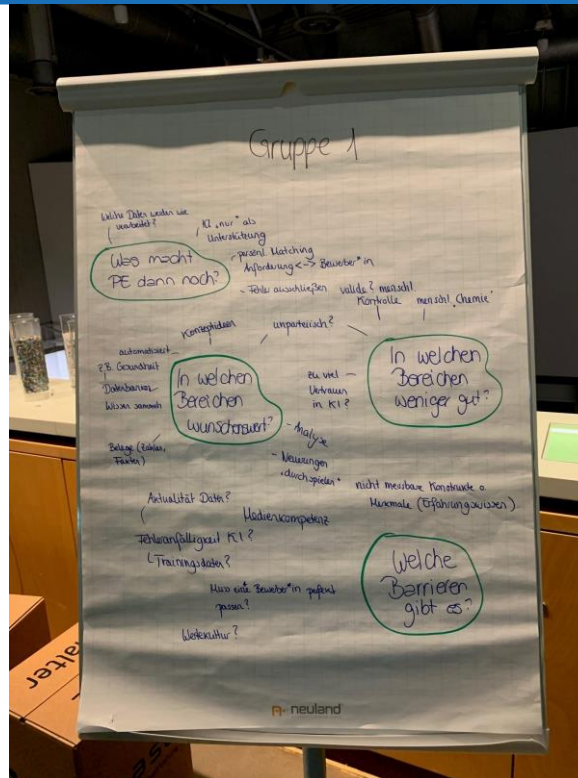 Gruppe 1
Welche Daten werden wie
verarbeitet?
KI "nur" als
Unterstützung
Was macht
PE dann noch?
persönl. Matching
Anforderung <-> Bewerber*in
Fehler ausschließen
valide?
menschl.
Kontrolle
menschl. "Chemie"
Konzeptideen
unparteiisch?
automatisiert
z.B. Gesundheit
Datenbanken
Wissen sammeln
Belege (Zahlen,
Fakten)
In welchen
Bereichen
wünschenswert?
zu viel
Vertrauen
in KI?
In welchen
Bereichen
weniger gut?
- Analyse
- Neuerungen
"durchspielen"
nicht messbare Konstrukte o.
Merkmale (Erfahrungswissen)
Aktualität Daten?
Medienkompetenz
Fehleranfälligkeit KI?
Trainingsdaten?
Welche
Barrieren
gibt es?
Muss eine Bewerber*in perfekt
passen?
Wertekultur?
neuland
alter